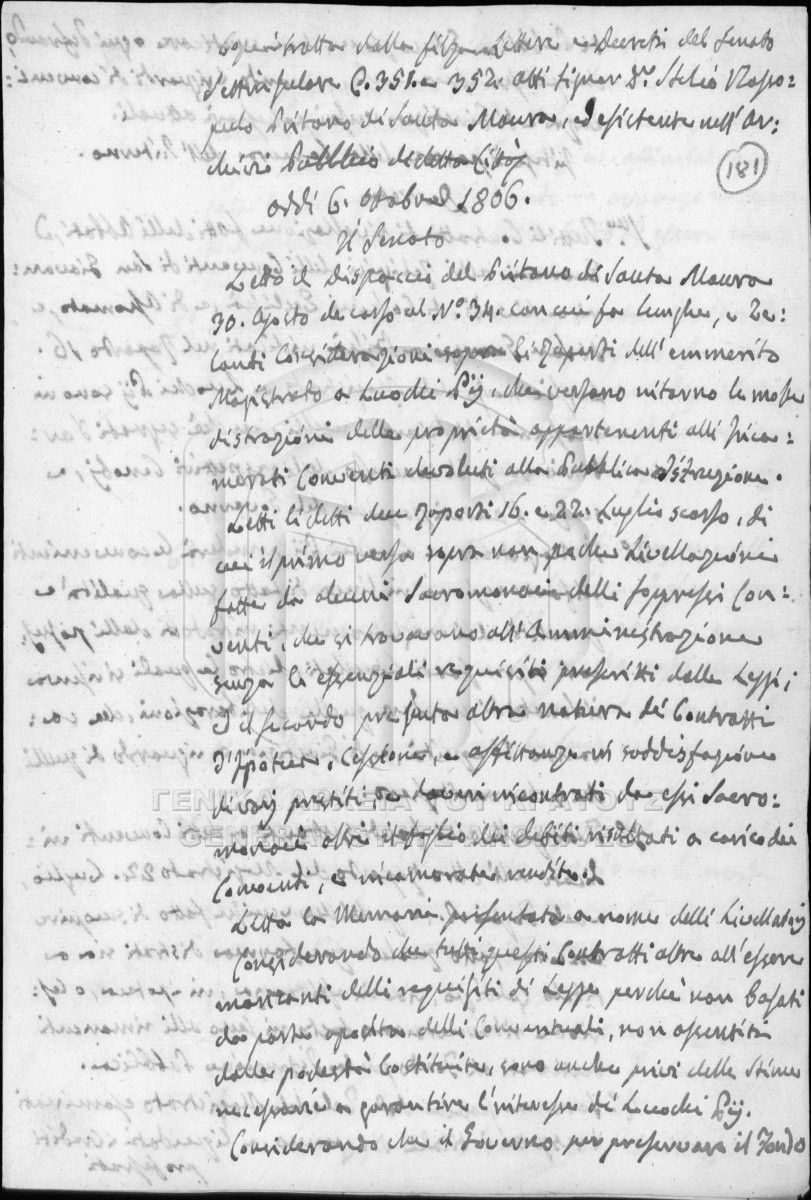 Copia tratta dalla filza Lettere e Decreti del Senato
Settinsulare C. 351. e 352. atti signor Dr. Stelio Vlapo:
pulo Pritano di Santa Maura, ed esistente nell'Ar:
chivio Pubblico di detta Città
181
addì 6. ottobre 1806.
Il Senato
Letto il Dispaccio del Pritano di Santa Maura
30. Agosto decorso al No. 34. con cui fa lunghe, e ze:
lanti Considerazioni sopra li Raporti dell'emmerito
Magistrato a Luochi Pij, che versano intorno le molte
distrazioni delle proprietà appartenenti alli Inca:
merati Conventi devoluti alla Pubblica Istruzione.
Letti li detti due Raporti 16. e 22. Luglio scorso, di
cui il primo versa sopra non poche Livellazioni
fatte da alcuni Sacromonaci delli soppressi Con:
venti, che si trovavano all'Amministrazione
senza li essenziali requisiti prescritti dalle Leggi;
ed il secondo presenta altra natura de Contratti
d'Ipoteca, Cessione, e affittanze in soddisfazione
di varj prestiti, che furon incontrati da essi Sacro:
monaci oltre il foglio dei debiti risultati a carico dei
Conventi, e incamerate rendite.
ΓΕΝΙΚΑ ΑΡΧΕΙΑ ΤΟΥ ΚΡΑΤΟΥΣ
GENERAL STATE ARCHIVES
Letta la Memoria presentata a nome delli Livellatarj
Considerando che tutti questi Contratti oltre all'essere
mancanti delli requisiti di Legge perchè non basati
da parte opposita delli Conventuali, non assentiti
dalle podestà Costituite, sono anche privi delle Stime
necessarie a garantire l'interesse de Luochi Pij.
Considerando che il Governo per preservare il Fondo